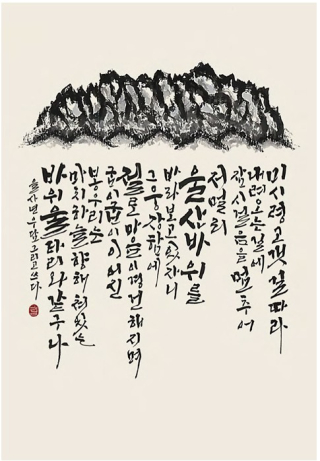 미시령 고갯길 따라
내려오는 길에
잠시 걸음을 멈추어
저 멀리
울산바위를
바라보고 있자니
그 웅장함에
절로 마음이 경건해지며
굽이굽이 이어진
봉우리는
마치 하늘 향해 쳐 있는
바위 울타리와 같구나
을사년 우담 그리고 쓰다